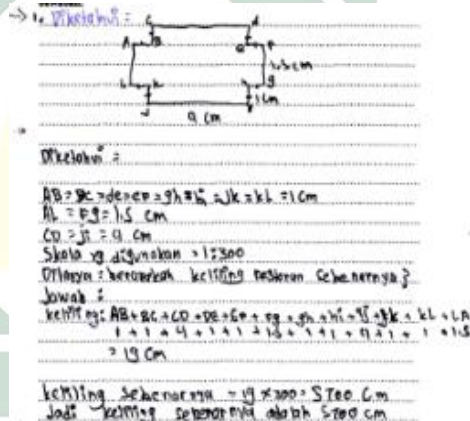 1. Diketahui :
C d
A B e F
1,5 cm
L k h g
1 cm
J
9 cm
Diketahui =
AB = BC = de = eF = gh = hi = Jk = kL = 1 cm
AL = Fg = 1,5 cm
CD = ji = 4 cm
Skala yg digunakan = 1:300
Ditanya : berapakah keliling restoran sebenarnya?
Jawab :
keliling : AB + BC + CD + DE + EF + Fg + gh + hi + ij + jk + kL + LA
1 + 1 + 4 + 1 + 1 + 1,5 + 1 + 1 + 4 + 1 + 1 + 1,5
= 19 cm
keliling sebenarnya = 19 x 300 = 5700 cm
Jadi keliling sebenarnya adalah 5700 cm